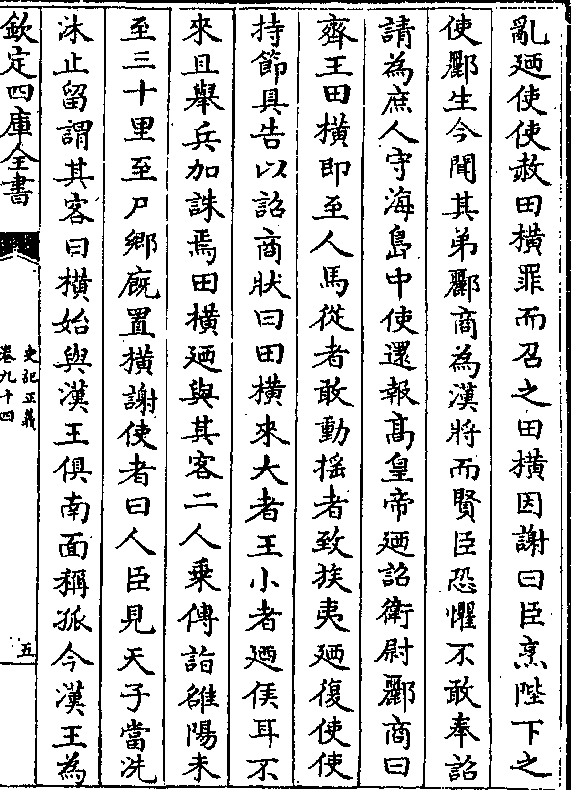 亂廼使使赦田橫罪而召之田橫因謝曰臣烹陛下之
使酈生今聞其弟酈商為漢將而賢臣恐懼不敢奉詔
請為庶人守海島中使還報髙皇帝廼詔衛尉酈商曰
齊王田橫即至人馬從者敢動摇者致族夷廼復使使
持節具告以詔商狀曰田橫來大者王小者廼侯耳不
來且舉兵加誅焉田橫廼與其客二人乗傳詣雒陽未
至三十里至尸鄉廐置橫謝使者曰人臣見天子當洗
沐止留謂其客曰橫始與漢王俱南面稱孤今漢王為
欽定四庫全書
史記正義
卷九十四
五